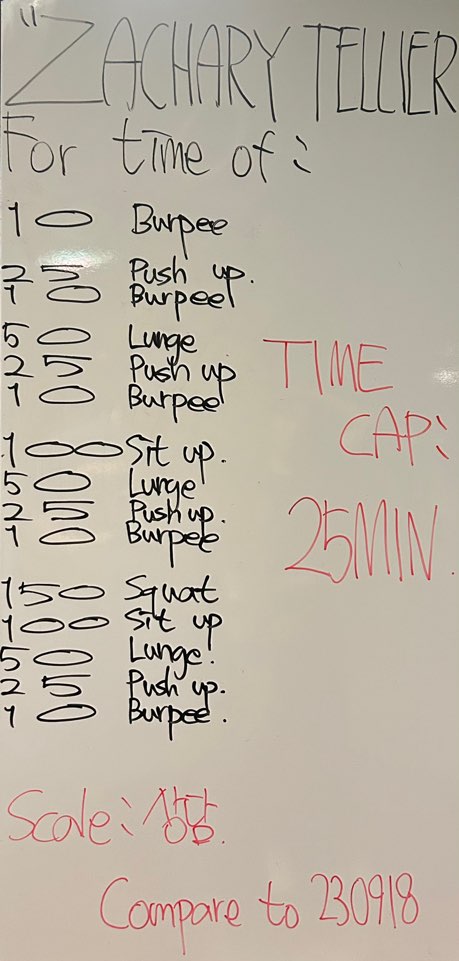 "ZACHARY TELLIER
For time of:
10 Burpee
25 Push up.
10 Burpee
50 Lunge
25 Push up
10 Burpee
100 Sit up.
50 Lunge
25 Push up.
10 Burpee
150 Squat
100 Sit up
50 Lunge.
25 Push up.
10 Burpee.
TIME
CAP:
25MIN.
Scale: 상담.
Compare to 230918